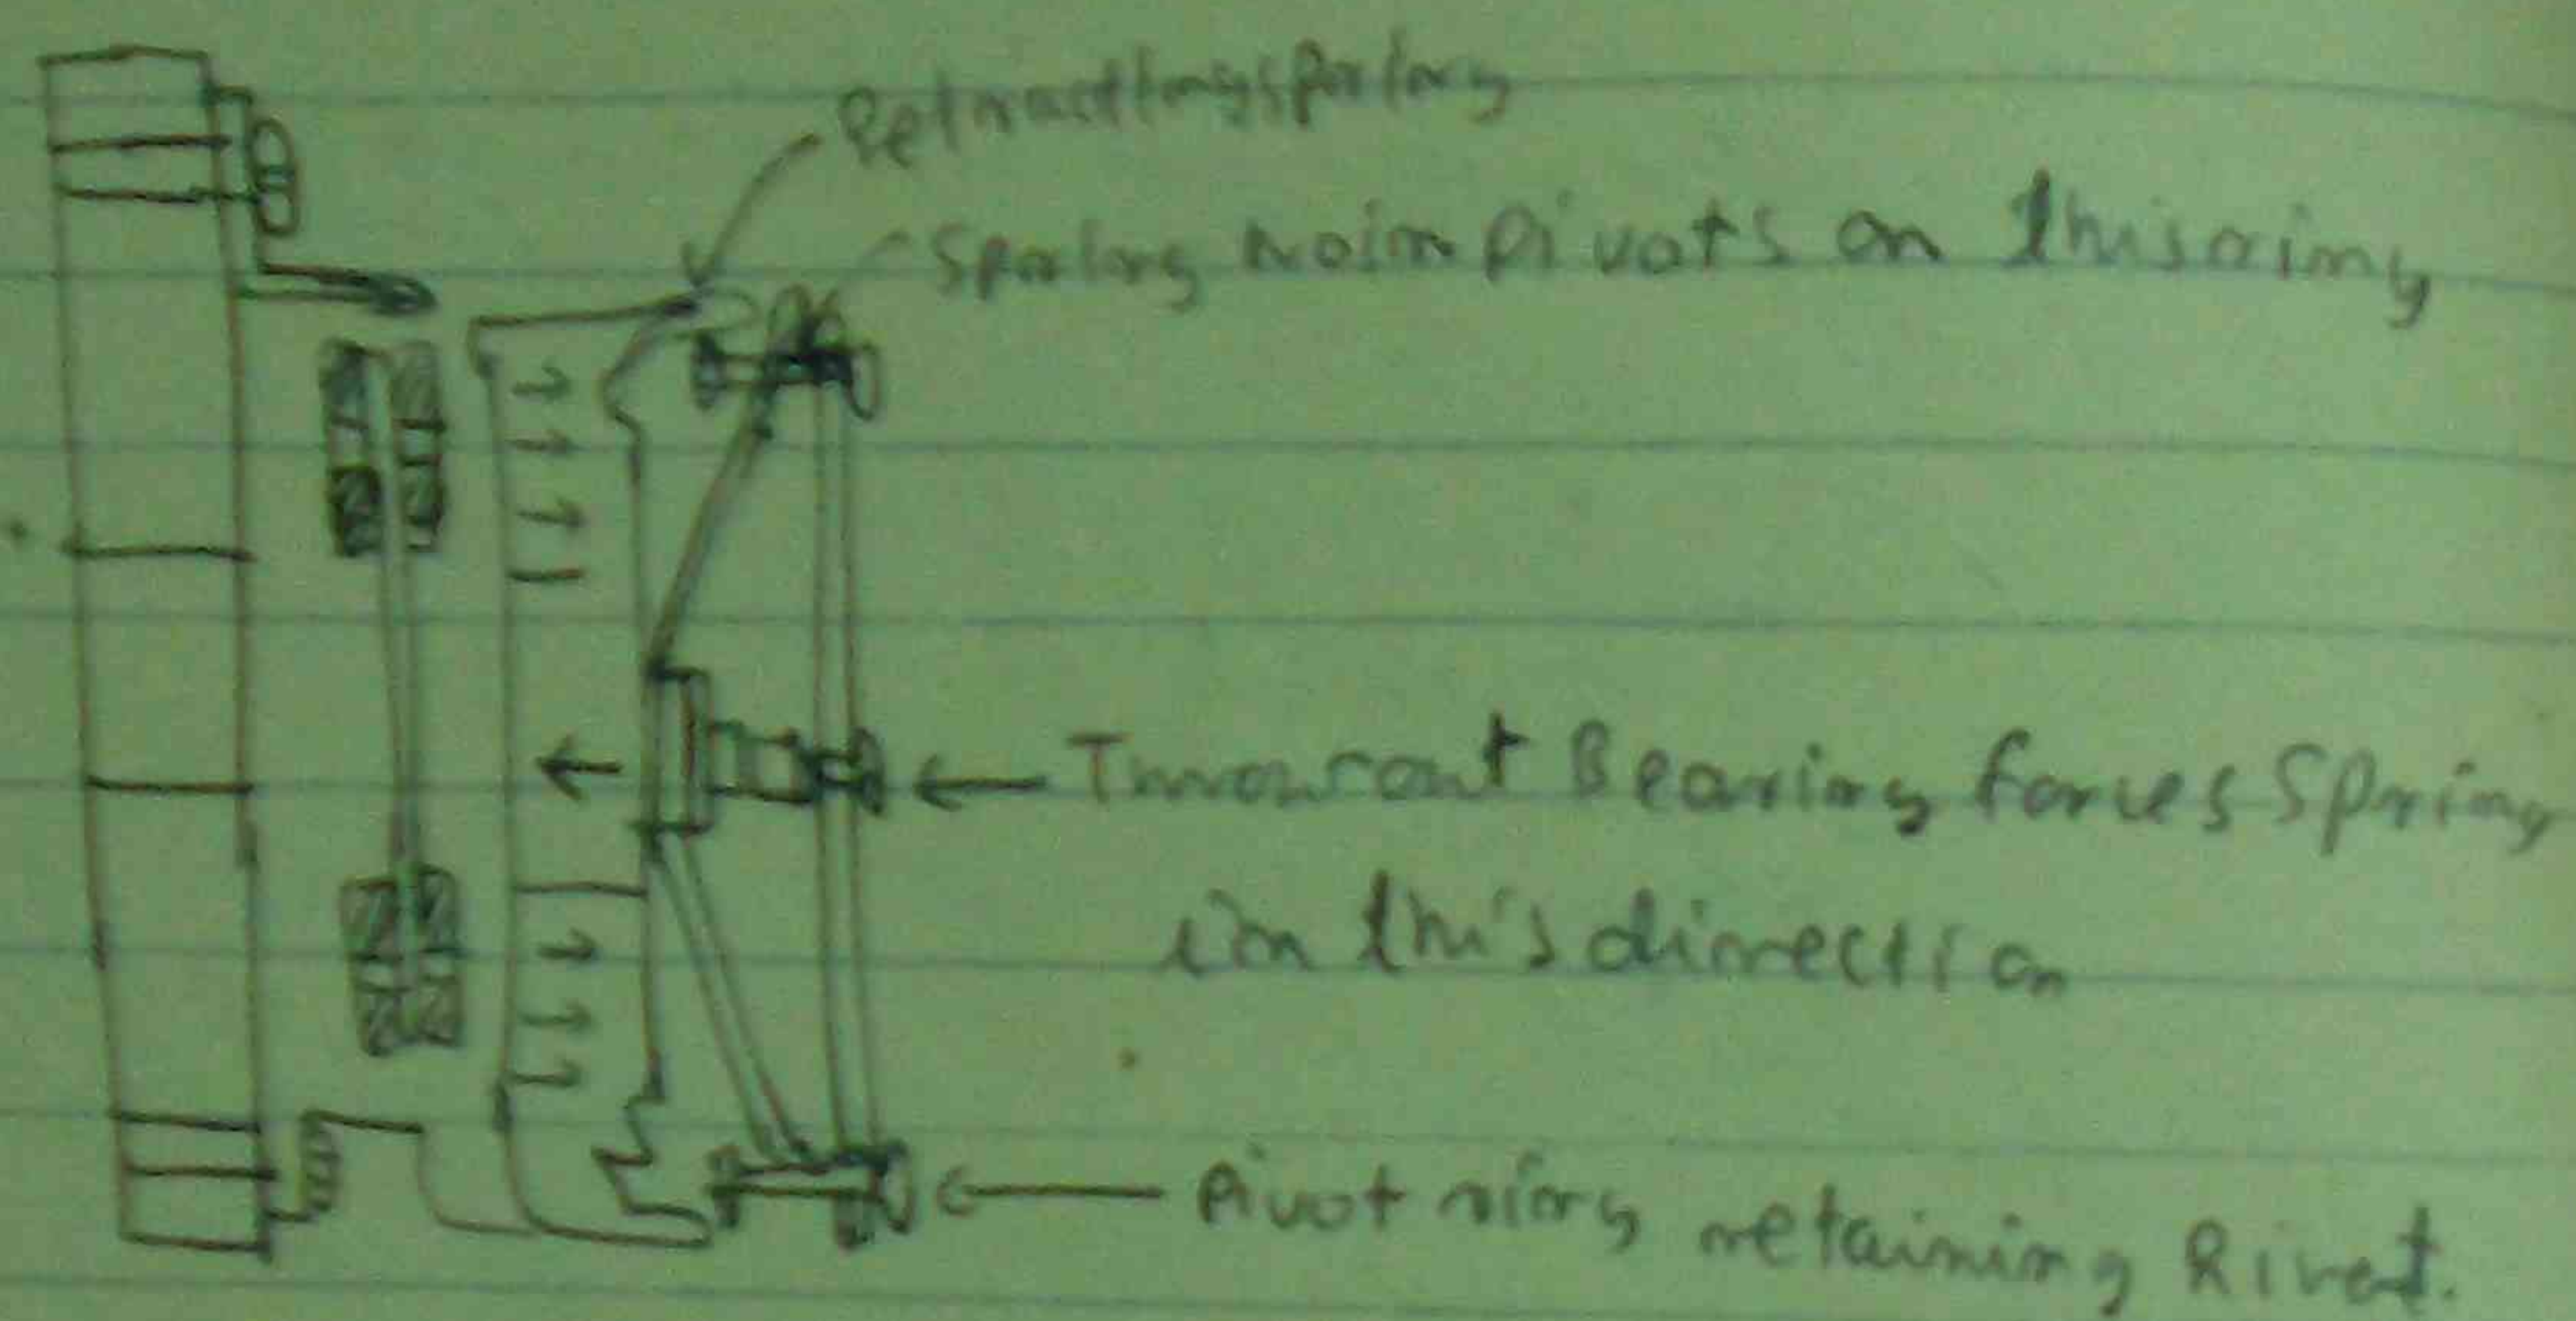 Retracting spring
Spring noim pivots on this ring
Throwout Bearing forces Spring
in this direction
Pivot ring retaining Rivet.